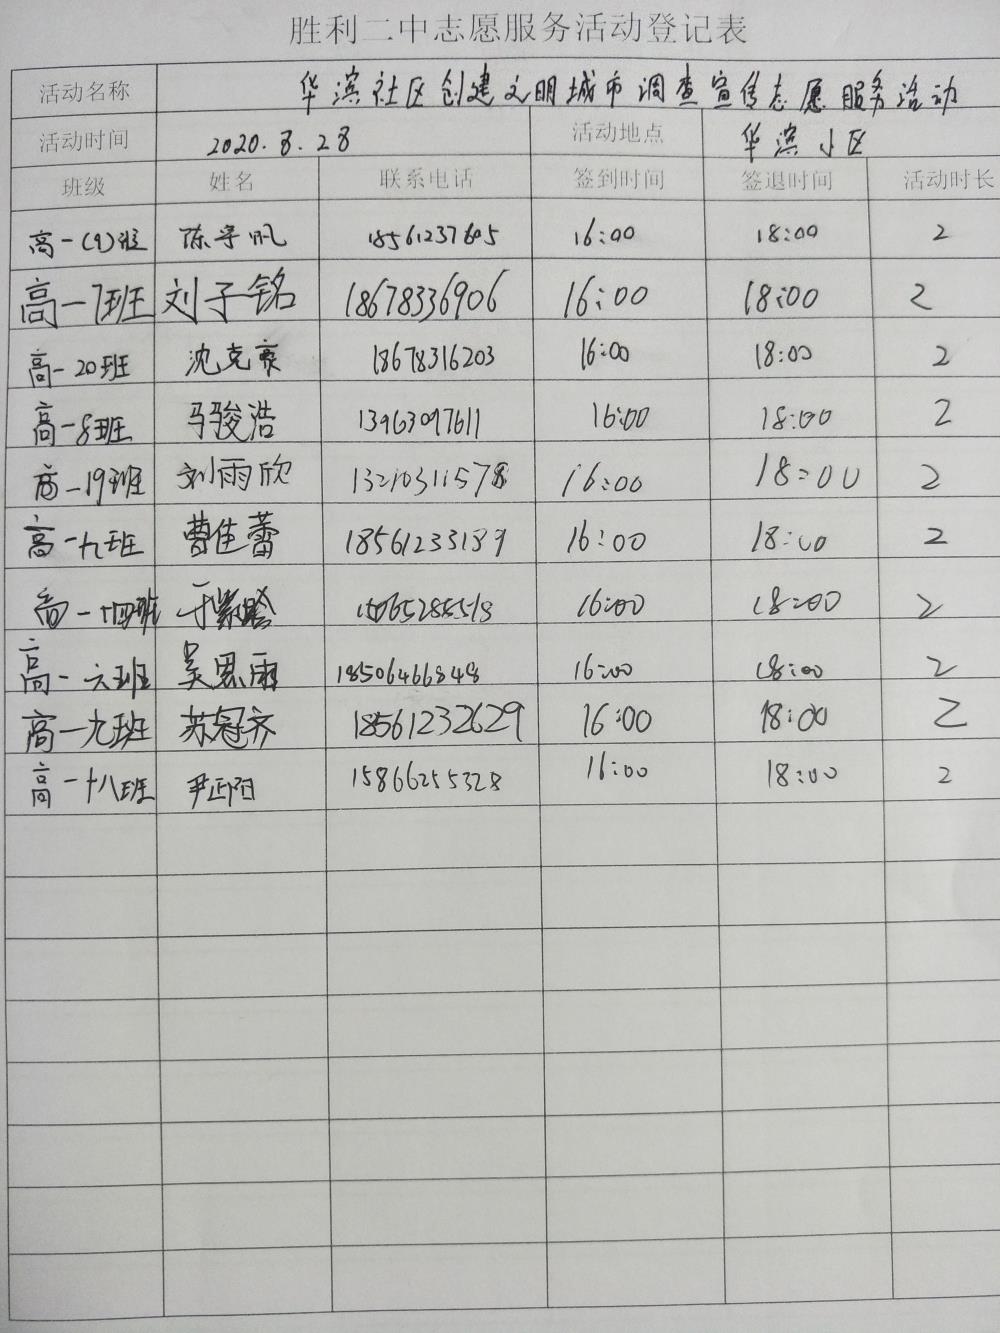 胜利二中志愿服务活动登记表
活动名称 华滨社区创建文明城市调查宣传志愿服务活动
活动时间 2020.8.28 活动地点 华滨小区
班级 姓名 联系电话 签到时间 签退时间 活动时长
高一(9)班 陈宇帆 18561237605 16:00 18:00 2
高一7班 刘子铭 18678336906 16:00 18:00 2
高一20班 沈克豪 18678316203 16:00 18:00 2
高一8班 马骏浩 13963097611 16:00 18:00 2
高一19班 刘雨欣 13210311578 16:00 18:00 2
高一九班 曹佳蕾 18561233189 16:00 18:00 2
高一十四班 于紫晗 16:00 18:00 2
高一六班 吴思雨 18506466848 16:00 18:00 2
高一九班 苏冠齐 18561232629 16:00 18:00 2
高一十八班 尹正阳 15866255328 16:00 18:00 2